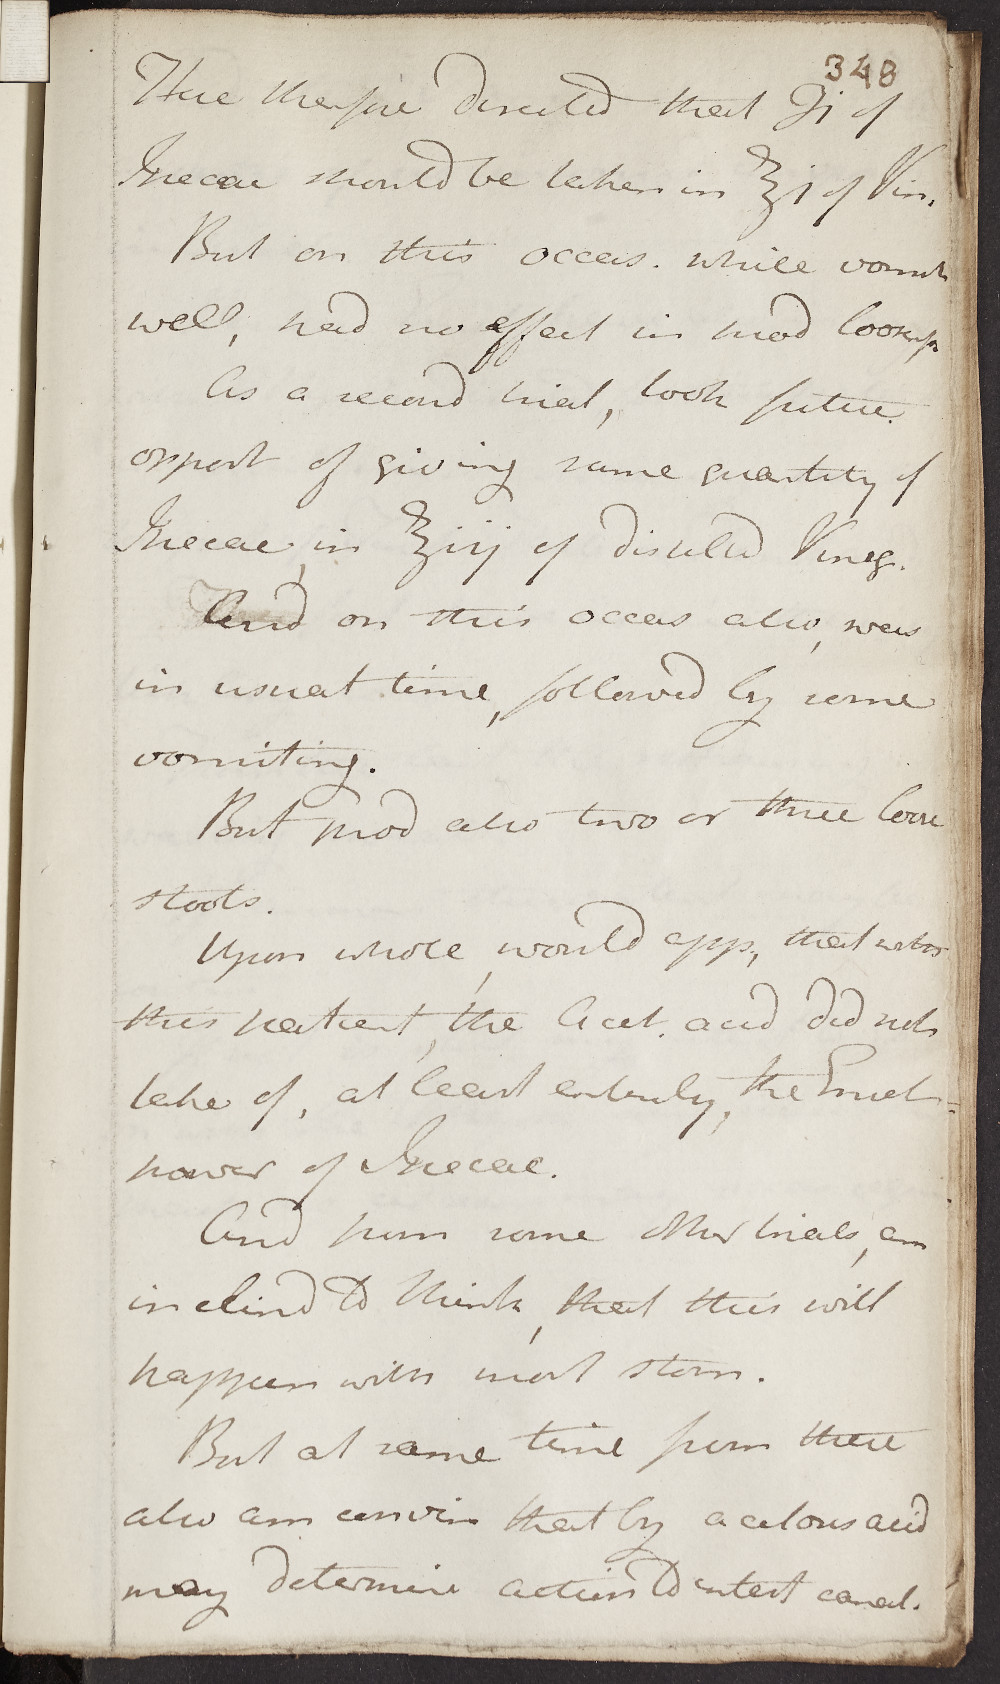 348
Have therefore directed that ʒi of
Ipecac should be taken in ℥j of Vin.
But on this occas. while vomit
well, had no effect in prod loosness
As a second trial, took future
opport of giving same quantity of
Ipecac, in ℥iij of distilld Vineg.
And on this occas also, was
in usual time, followed by some
vomiting.
But prod also two or three loose
stools.
Upon whole, would app, that with
this patient, the Acet. acid did not
take of, at least entirely, the Emet-
power of Ipecac.
And from some other trials, am
inclind to think, that this will
happen with most stom.
But at same time from these
also am convin that by acetous acid
may determine action to intest canal.